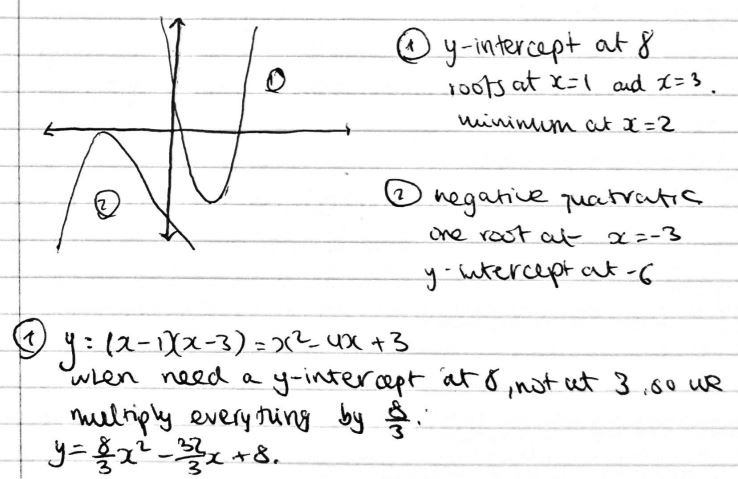 ① y-intercept at 8
roots at x=1 and x=3.
minimum at x=2
①
② negative quatratic
one root at x=-3
y-intercept at -6
②
① y=(x-1)(x-3)=x²-4x+3
when need a y-intercept at 8, not at 3, so we
multiply everything by 8/3.
y=8/3x²-32/3x+8.